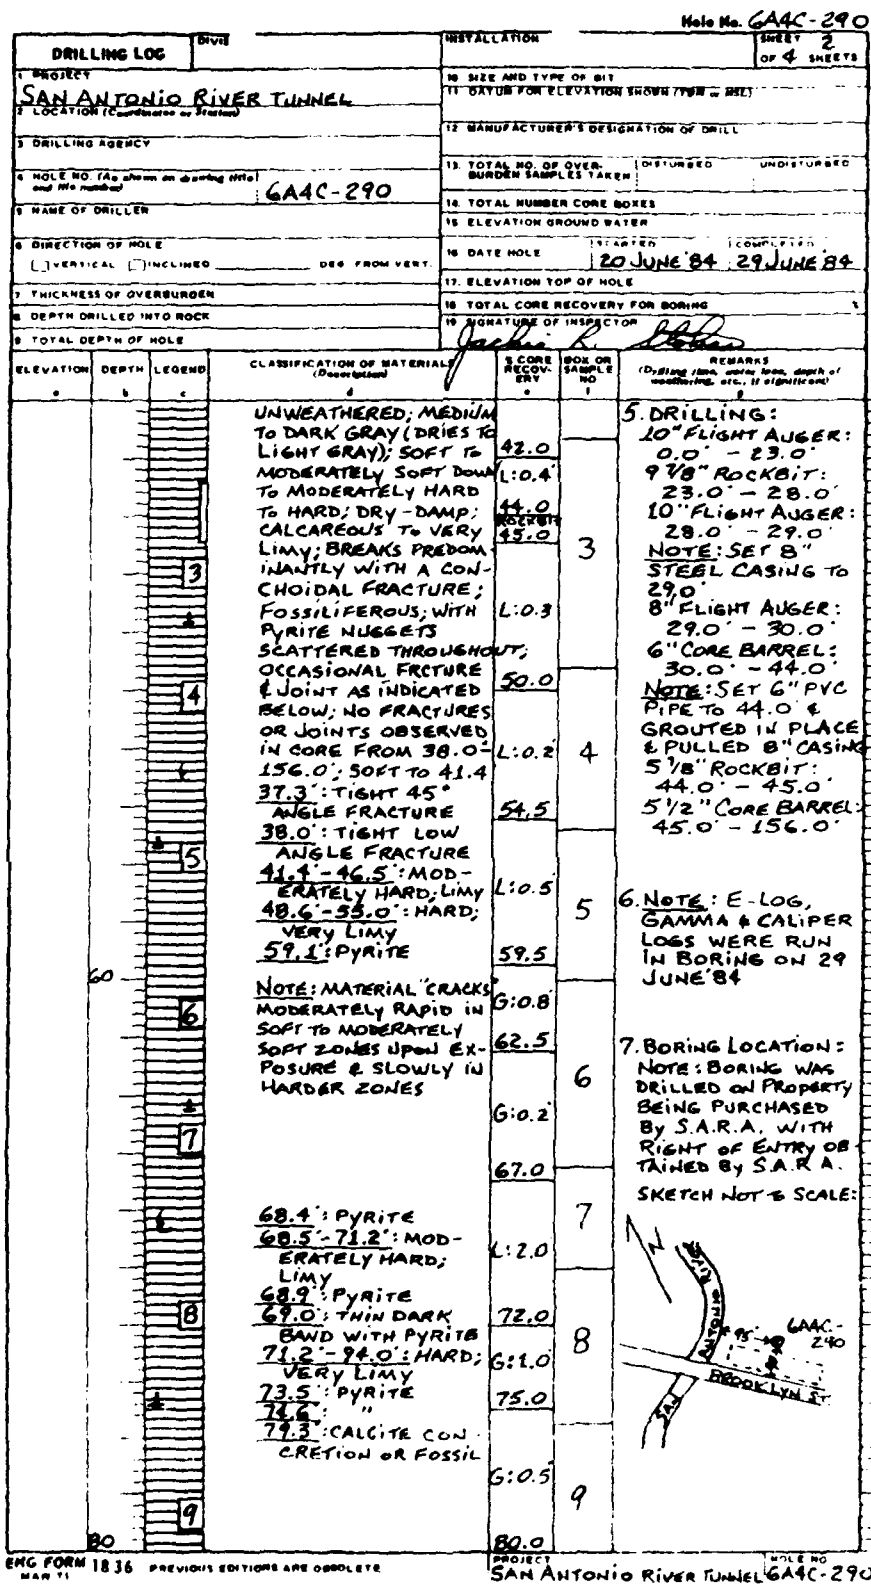 Hole No. 6A4C-290
DRILLING LOG
DIVIS
INSTALLATION
SHEET 2
OF 4 SHEETS
1 PROJECT
SAN ANTONIO RIVER TUNNEL
2 LOCATION (Coordinates or Station)
3 DRILLING AGENCY
4 HOLE NO. (As shown on drawing title
and file number)
6A4C-290
5 NAME OF DRILLER
6 DIRECTION OF HOLE
VERTICAL INCLINED DEG FROM VERT.
7 THICKNESS OF OVERBURDEN
8 DEPTH DRILLED INTO ROCK
9 TOTAL DEPTH OF HOLE
10 SIZE AND TYPE OF BIT
11 DATUM FOR ELEVATION SHOWN (TBM or MSL)
12 MANUFACTURER'S DESIGNATION OF DRILL
13. TOTAL NO. OF OVER-
BURDEN SAMPLES TAKEN
DISTURBED
UNDISTURBED
14. TOTAL NUMBER CORE BOXES
15 ELEVATION GROUND WATER
16 DATE HOLE
STARTED
20 JUNE '84
COMPLETED
29 JUNE '84
17. ELEVATION TOP OF HOLE
18 TOTAL CORE RECOVERY FOR BORING %
19 SIGNATURE OF INSPECTOR
Jackie R.
ELEVATION
a
DEPTH
b
LEGEND
c
CLASSIFICATION OF MATERIALS
(Description)
d
% CORE
RECOV-
ERY
e
BOX OR
SAMPLE
NO
f
REMARKS
(Drilling time, water loss, depth of
weathering, etc., if significant)
g
60
80
3
4
5
6
7
8
9
UNWEATHERED; MEDIUM
TO DARK GRAY (DRIES TO
LIGHT GRAY); SOFT TO
MODERATELY SOFT DOWN
TO MODERATELY HARD
TO HARD; DRY-DAMP;
CALCAREOUS TO VERY
LIMY; BREAKS PREDOM-
INANTLY WITH A CON-
CHOIDAL FRACTURE;
FOSSILIFEROUS; WITH
PYRITE NUGGETS
SCATTERED THROUGHOUT;
OCCASIONAL FRCTURE
& JOINT AS INDICATED
BELOW; NO FRACTURES
OR JOINTS OBSERVED
IN CORE FROM 38.0'-
156.0'; SOFT TO 41.4
37.3': TIGHT 45°
ANGLE FRACTURE
38.0': TIGHT LOW
ANGLE FRACTURE
41.4'-46.5': MOD-
ERATELY HARD; LIMY
48.6'-55.0': HARD;
VERY LIMY
59.1': PYRITE
NOTE: MATERIAL "CRACKS"
MODERATELY RAPID IN
SOFT TO MODERATELY
SOFT ZONES UPON EX-
POSURE & SLOWLY IN
HARDER ZONES
68.4': PYRITE
68.5'-71.2': MOD-
ERATELY HARD;
LIMY
68.9': PYRITE
69.0': THIN DARK
BAND WITH PYRITE
71.2'-94.0': HARD;
VERY LIMY
73.5': PYRITE
74.6': "
79.3': CALCITE CON-
CRETION OR FOSSIL
42.0
L:0.4'
44.0
ROCKBIT
45.0
L:0.3
50.0
L:0.2'
54.5
L:0.5'
59.5
G:0.8'
62.5
G:0.2'
67.0
L:2.0'
72.0
G:1.0'
75.0
G:0.5'
80.0
3
4
5
6
7
8
9
5. DRILLING:
10" FLIGHT AUGER:
0.0' - 23.0'
9 7/8" ROCKBIT:
23.0' - 28.0'
10" FLIGHT AUGER:
28.0' - 29.0'
NOTE: SET 8"
STEEL CASING TO
29.0'
8" FLIGHT AUGER:
29.0' - 30.0'
6" CORE BARREL:
30.0' - 44.0'
NOTE: SET 6" PVC
PIPE TO 44.0' &
GROUTED IN PLACE
& PULLED 8" CASING
5 7/8" ROCKBIT:
44.0' - 45.0'
5 1/2" CORE BARREL:
45.0' - 156.0'
6. NOTE: E-LOG,
GAMMA & CALIPER
LOGS WERE RUN
IN BORING ON 29
JUNE '84
7. BORING LOCATION:
NOTE: BORING WAS
DRILLED ON PROPERTY
BEING PURCHASED
BY S.A.R.A. WITH
RIGHT OF ENTRY OB-
TAINED BY S.A.R.A.
SKETCH NOT TO SCALE:
N
SAN ANTONIO RIVER
95'
6A4C-
290
BROOKLYN ST
ENG FORM 1836
MAR 71
PREVIOUS EDITIONS ARE OBSOLETE
PROJECT
SAN ANTONIO RIVER TUNNEL
HOLE NO
6A4C-290